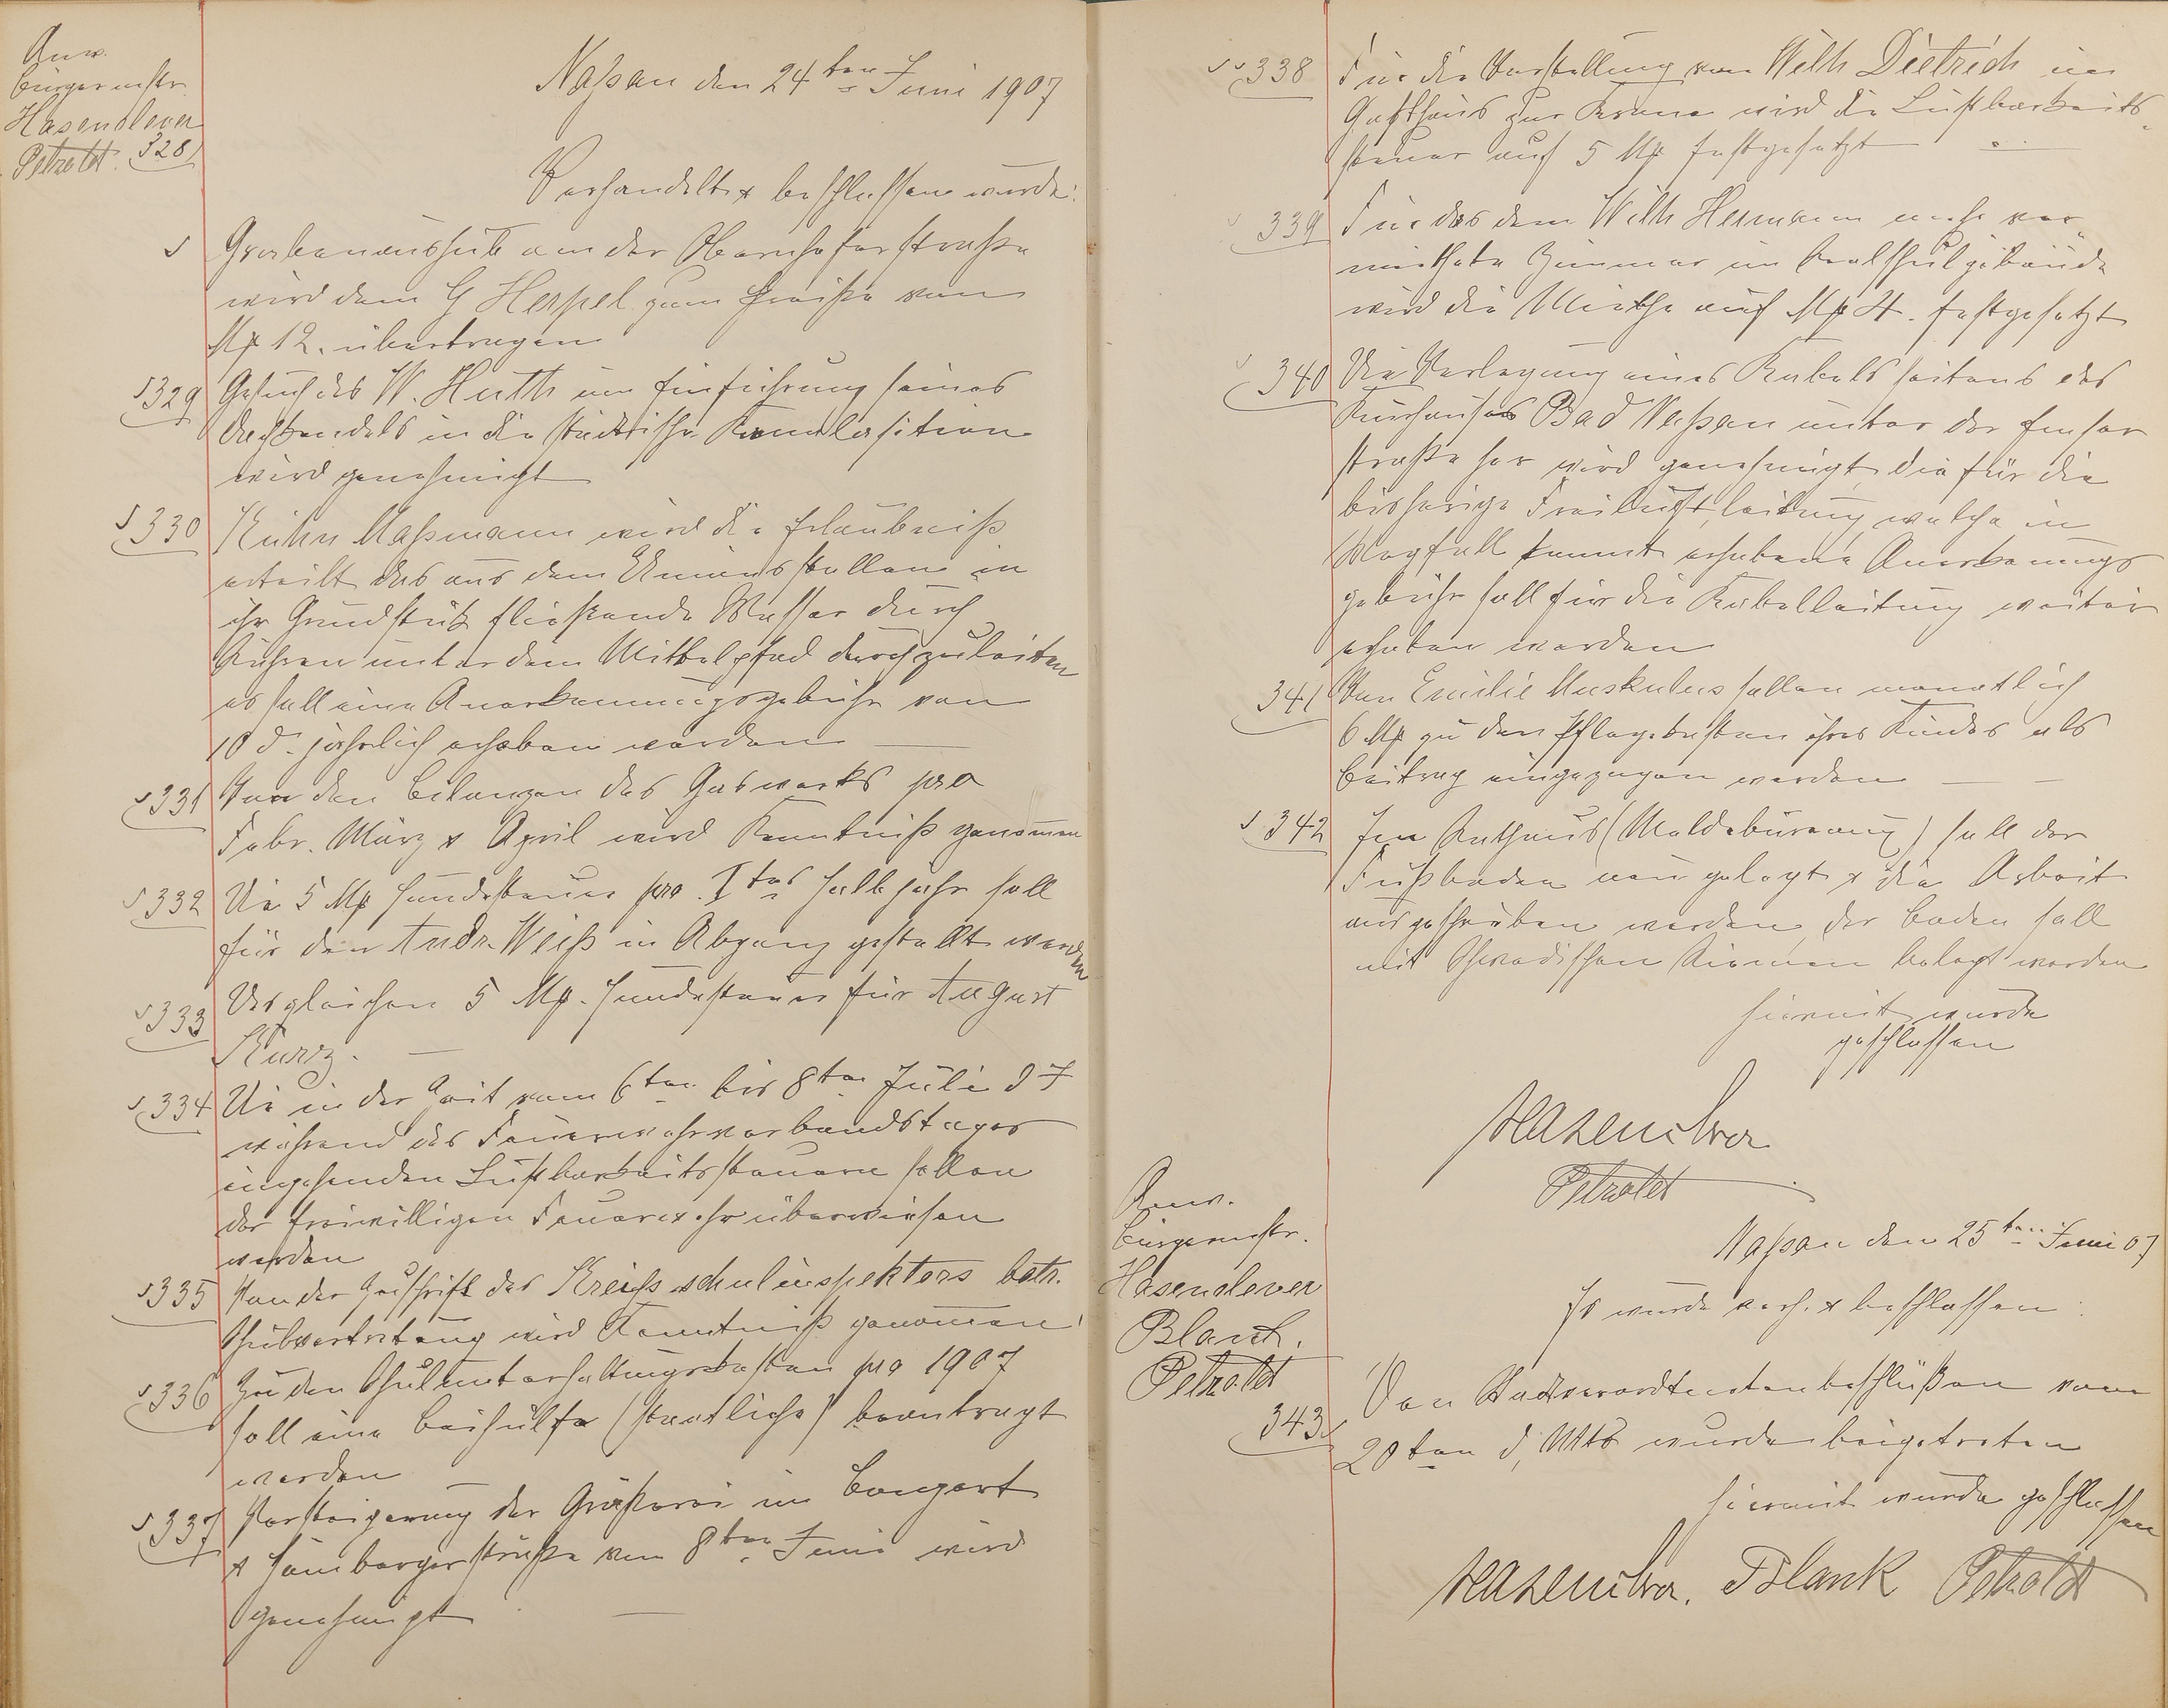 Anw.
Bürgermstr.
Hasenclever
Petzoldt. 328
Naßau den 24ten Juni 1907
Verhandelt & beschlossen wurde:
Grabenaushub an der Obernhoferstraße
wird dem G Herpel zum Preiße von
Mk 12. übertragen
§329 Gesuch des W. Huth um Einführung seines
Dachkandels in die städtische Kanalisation
wird genehmigt
§330 Kühn Maßmann wird die Erlaubniß
erteilt das aus dem Stollen in
ihr Grundstück fließende Wasser durch
Rohren unter dem Mittelpfad durchzuleiten
es soll eine Anerkennungsgebühr von
10 d. jährlich erhoben werden
§331 Von den Bilanzen des Gaswerks pro
Febr. März & April wird Kenntniß genommen
§332 Die 5 Mk Hundesteuer pro Ites Halbjahr soll
für den Andr. Weiß in Abgang gestellt werden
§333 Desgleichen 5 Mk. Hundesteuer für August
Kurz.
§334 Die in der Zeit vom 6ten bis 8ten Juli d J
während des Feuerwehrverbandstages
eingehenden Lustbarkeitssteuern sollen
der freiwilligen Feuerwehr überwiesen
werden
§335 Von der Zuschrift des Kreisschulinspektors betr.
Schulvertretung wird Kenntniß genommen
§336 Zu den Schulunterhaltungskosten pro 1907
soll eine Beihülfe (staatliche) beantragt
werden
§337 Versteigerung der Gräßerei im Bongart
& Hömbergerstraße vom 8ten Juni wird
genehmigt
§338 Für die Vorstellung von Wilh Dietrich im
Gasthaus zur Krone wird die Lustbarkeits-
steuer auf 5 Mk festgesetzt
339 Für das dem Wilh Hermann mehr ver-
miethete Zimmer im Realschulgebäude
wird die Miethe auf Mk 4. festgesetzt
340 Die Verlegung eines Kabels seitens des
Kurhauses Bad Naßau unter der Emser
straße her wird genehmigt, die für die
bisherige Freiluftleitung welche in
Wegfall kommt erhobene Anerkennungs
gebühr soll für die Kabelleitung weiter
erhoben werden
341 Von Emilie Muskulus sollen monatlich
6 Mk zu den Pflegekosten ihres Kindes als
Beitrag eingezogen werden
§342 Im Rathaus (Meldebüreau) soll der
Fußboden neu gelegt & die Arbeit
ausgeschrieben werden, der Boden soll
mit schwedischen Riemen belegt werden
Hiermit wurde
geschlossen
Hasenclever
Petzoldt
Anw.
Bürgermstr.
Hasenclever
Blank.
Petzoldt
Naßau den 25ten Juni 07
Es wurde verh. & beschlossen:
343 Den Stadtverordtnetenbeschlüßen vom
20ten d, Mts wurde beigetreten
Hiermit wurde geschlossen
Hasenclever. Blank Petzoldt